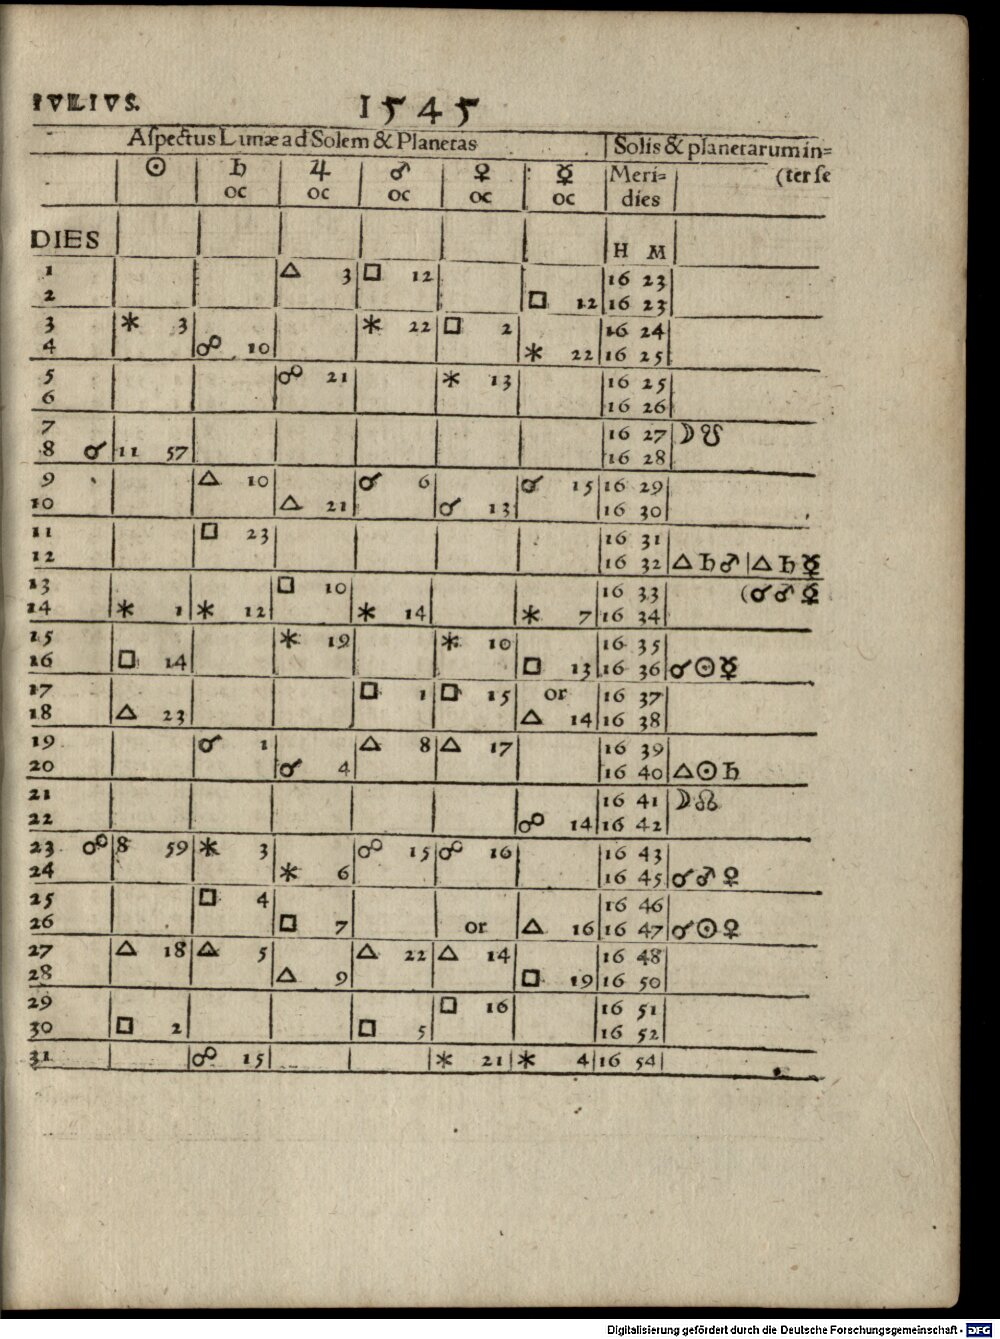 IVLIVS. 1545
Aſpectus Lunæ ad Solem & Planetas | Solis & planetarum in=
☉ | ♄ | ♃ | ♂ | ♀ | ☿ | Meri= | (ter ſe
oc | oc | oc | oc | oc | dies
DIES | H M
1 | | | △ 3 | □ 12 | | | 16 23
2 | | | | | | □ 12 | 16 23
3 | ⚹ 3 | | | ⚹ 22 | □ 2 | | 16 24
4 | | ☍ 10 | | | | ⚹ 22 | 16 25
5 | | | ☍ 21 | | ⚹ 13 | | 16 25
6 | | | | | | | 16 26
7 | | | | | | | 16 27 | ☽ ☋
8 ☌ | 11 57 | | | | | | 16 28
9 | | △ 10 | | ☌ 6 | | ☌ 15 | 16 29
10 | | | △ 21 | | ☌ 13 | | 16 30
11 | | □ 23 | | | | | 16 31
12 | | | | | | | 16 32 | △ ♄ ♂ | △ ♄ ☿
13 | | | □ 10 | | | | 16 33 | (☌ ♂ ☿
14 | ⚹ 1 | ⚹ 12 | | ⚹ 14 | | ⚹ 7 | 16 34
15 | | | ⚹ 19 | | ⚹ 10 | | 16 35
16 | □ 14 | | | | | □ 13 | 16 36 | ☌ ☉ ☿
17 | | | | □ 1 | □ 15 | or | 16 37
18 | △ 23 | | | | | △ 14 | 16 38
19 | | ☌ 1 | | △ 8 | △ 17 | | 16 39
20 | | | ☌ 4 | | | | 16 40 | △ ☉ ♄
21 | | | | | | | 16 41 | ☽ ☊
22 | | | | | | ☍ 14 | 16 42
23 ☍ | 8 59 | ⚹ 3 | | ☍ 15 | ☍ 16 | | 16 43
24 | | | ⚹ 6 | | | | 16 45 | ☌ ♂ ♀
25 | | □ 4 | | | | | 16 46
26 | | | □ 7 | | or | △ 16 | 16 47 | ☌ ☉ ♀
27 | △ 18 | △ 5 | | △ 22 | △ 14 | | 16 48
28 | | | △ 9 | | | □ 19 | 16 50
29 | | | | | □ 16 | | 16 51
30 | □ 2 | | | □ 5 | | | 16 52
31 | | ☍ 15 | | | ⚹ 21 | ⚹ 4 | 16 54
Digitalisierung gefördert durch die Deutsche Forschungsgemeinschaft - DFG